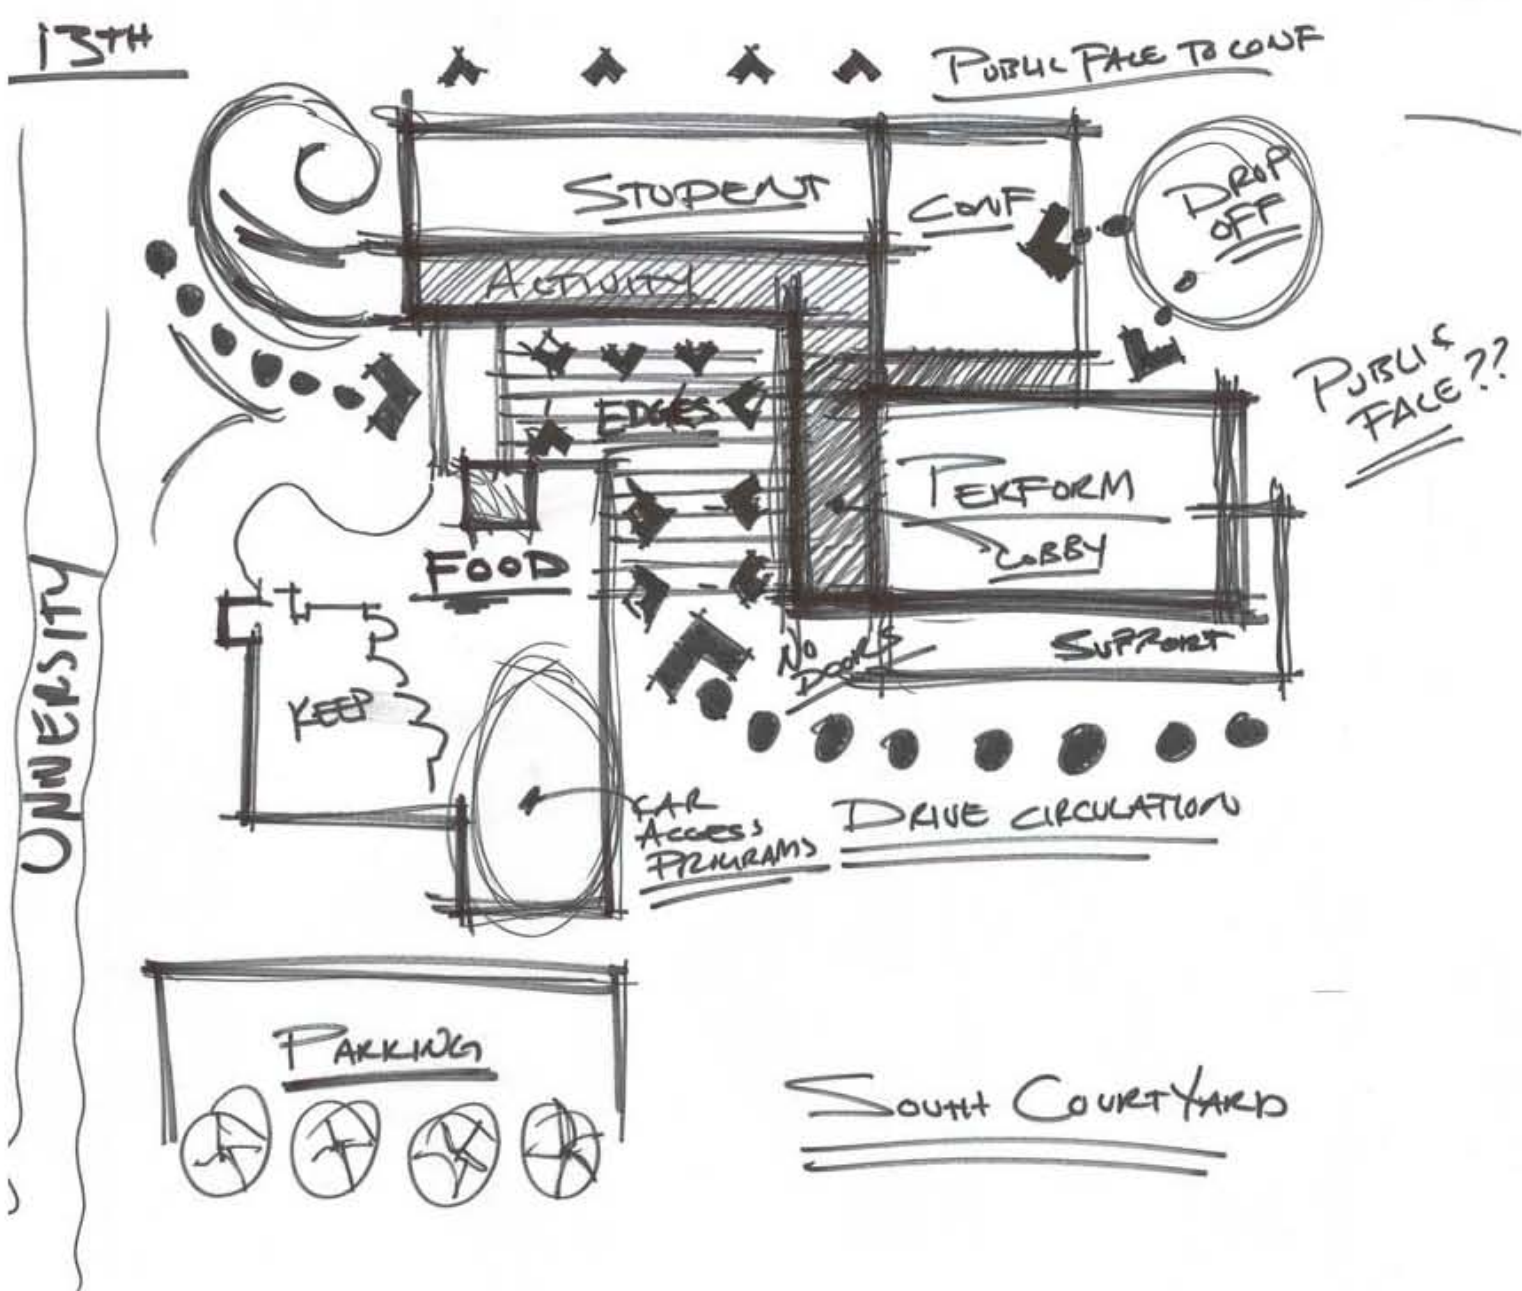 13TH
PUBLIC FACE TO CONF
STUDENT
CONF
DROP
OFF
ACTIVITY
PUBLIC
FACE??
EDGES
PERFORM
LOBBY
FOOD
NO
DOORS
SUPPORT
KEEP
UNIVERSITY
CAR
ACCESS
PROGRAMS
DRIVE CIRCULATION
PARKING
SOUTH COURTYARD